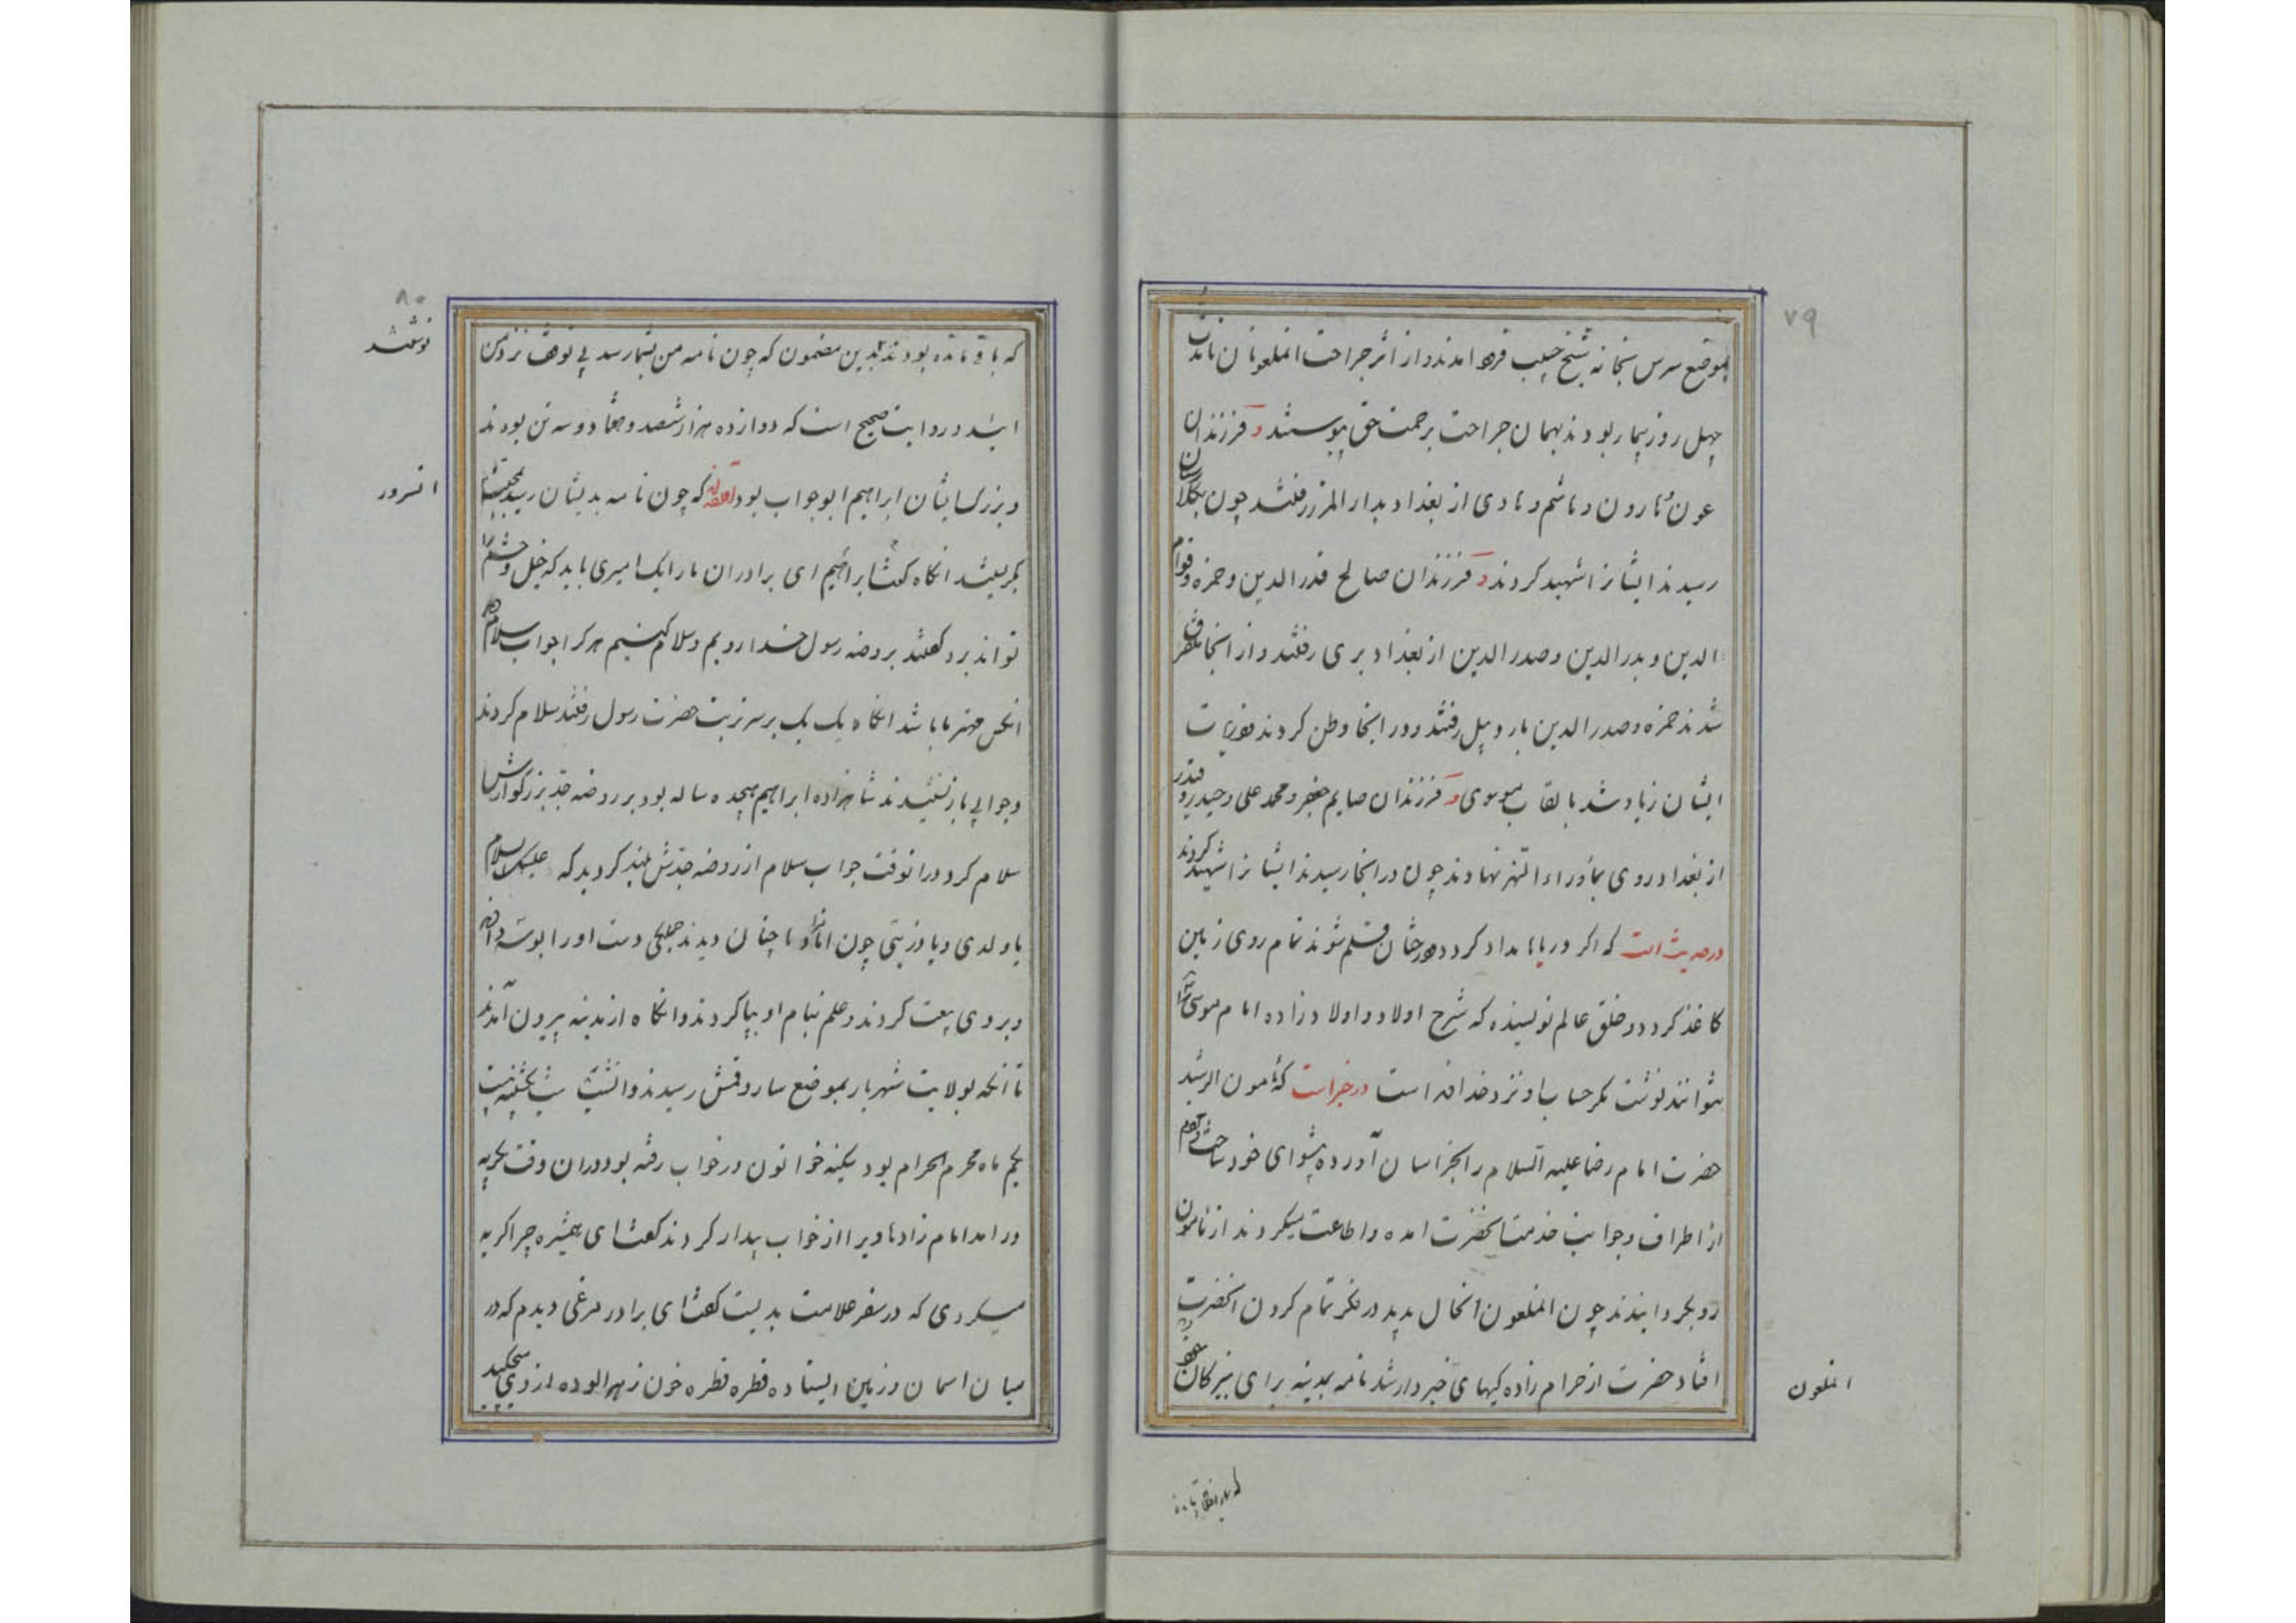 ۷۹
بموضع سرس بخانه شیخ حبیب فرود امدند و از اثر جراحت انملعونان
چهل روز بیمار بودند بهمان جراحت برحمت حق پیوستند و فرزندان
عون و هارون و هاشم و هادی از بغداد بدار المرز رفتند چون بکلارستان
رسیدند ایشانرا شهید کردند و فرزندان صالح قدر الدین و حمزه و قوام
الدین و بدر الدین و صدر الدین از بغداد بری رفتند و از انجا متفرق
شدند حمزه و صدر الدین باردبیل رفتند و در انجا وطن کردند و ذریات
ایشان زیاد شد بالقاب موسوی و فرزندان صایم جعفر و محمد علی و حیدر و قیدر
از بغداد روی بماوراء النهر نهادند چون در انجا رسیدند ایشانرا شهید کردند
در حدیث است که اکر دریاها مداد کردد و درختان قلم شوند تمام روی زمین
کاغذ کردد و خلق عالم نویسنده که شرح اولاد و اولاد زاده امام موسی را
نتوانند نوشت مکر حساب او نزد خدا است در خبر است که مامون الرشید
حضرت امام رضا علیه السلام را بخراسان آورده پیشوای خود ساخت مردم
از اطراف و جوانب خدمت انحضرت امده و اطاعت میکردند از مامون
رو بکردانیدند چون انملعون انحال بدید در فکر تمام کردن انحضرت
افتاد حضرت از حرام زاده کیهای خبردار شد نامه بمدینه برای نبیرکان
انملعون
۸۰
نوشتند
که باقیمانده بودند بدین مضمون که چون نامه من بشما رسد بی توقف نزد من
ائید و روایت صحیح است که دوازده هزار و ششصد و هفتاد و سه تن بودند
و بزرک ایشان ابراهیم ابو جواب بود القصه که چون نامه بدیشان رسید
انسرور
بکریستند انکاه کفت ابراهیم ای برادران مارا یک امیری باید که خیل و حشم را
تواند برد کفتند بروضه رسول خدا رویم و سلام کنیم هر کرا جواب سلام دهد
انکس مهتر ما باشد انکاه یک یک بر سر تربت حضرت رسول رفتند سلام کردند
و جوابی باز نشنیدند شاهزاده ابراهیم هیجده ساله بود بر روضه جد بزرکوارش
سلام کرد در انوقت جواب سلام از روضه جدش بلند کردید که علیک السلام
یا ولدی و یا ذریتی چون امامزاده ها چنان دیدند جملکی دست اورا بوسه دادند
و بر وی بیعت کردند و علم بنام او بپا کردند و انکاه از مدینه بیرون آمدند
تا آنکه بولایت شهریار بموضع ساروقمش رسیدند و انشب شب یکشنبه بیست
یکم ماه محرم الحرام بود سکینه خواتون در خواب رفته بود در ان وقت بکریه
در امد امام زادها ویرا از خواب بیدار کردند کفتند ای همشیره چرا کریه
میکردی که در سفر علامت بدیست کفت ای برادر مرغی دیدم که در
میان اسمان و زمین ایستاده قطره قطره خون زهر الوده از وی میچکید